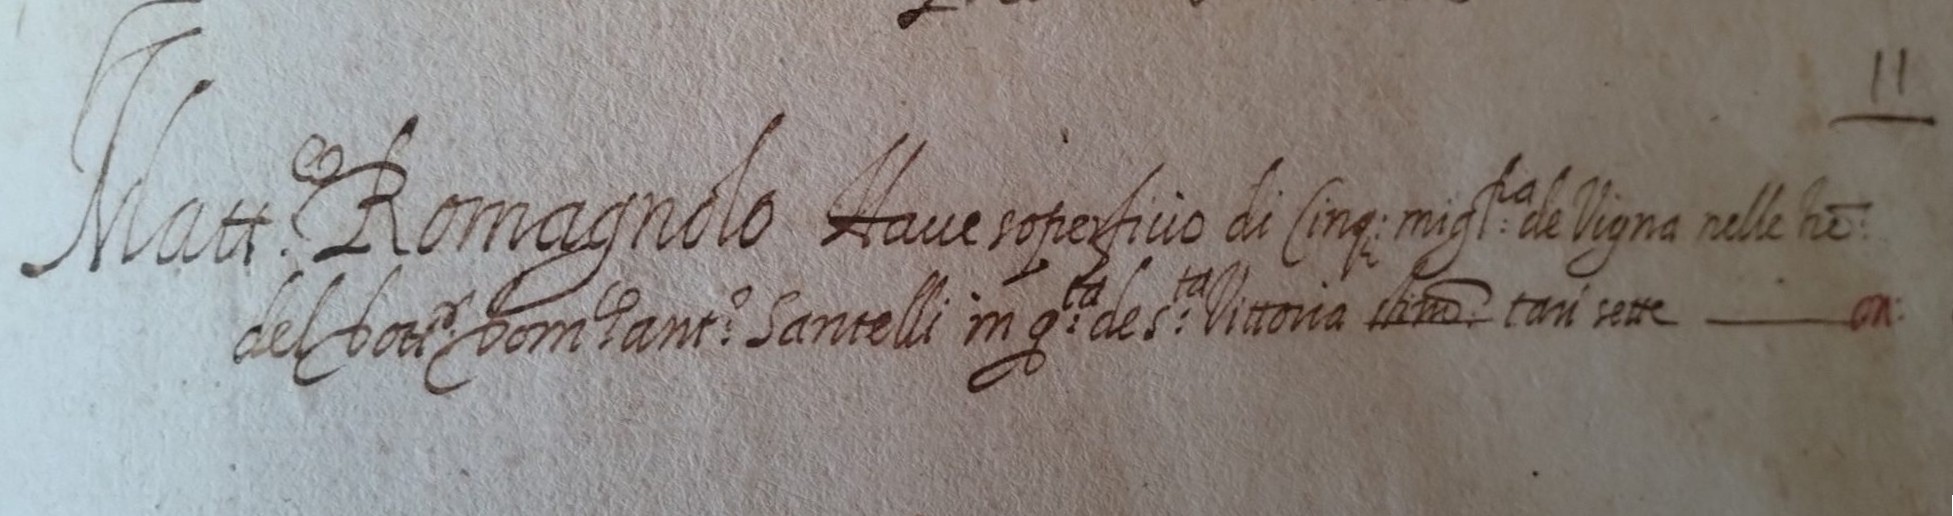 11
Matt.eo Romagnolo Haue soperfitio di Cinq: migl:ra de Vigna nelle he:
del Dottr: Dom:co ant:o Santelli in q:ta de s:ta Vittoria tari sette on: